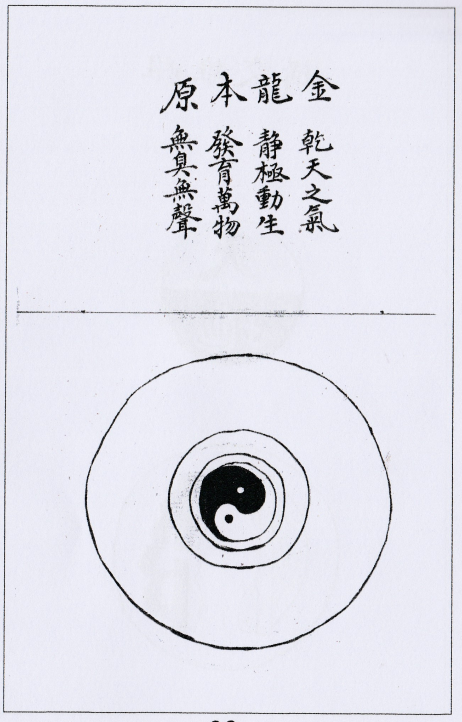 金 乾天之氣
龍 静極動生
本 發育萬物
原 無臭無聲